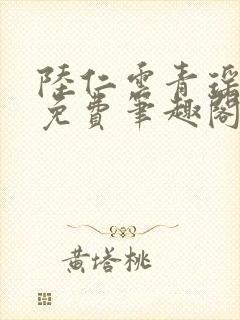 陸仁雲青瑤
免費筆趣閣
黃塔桃